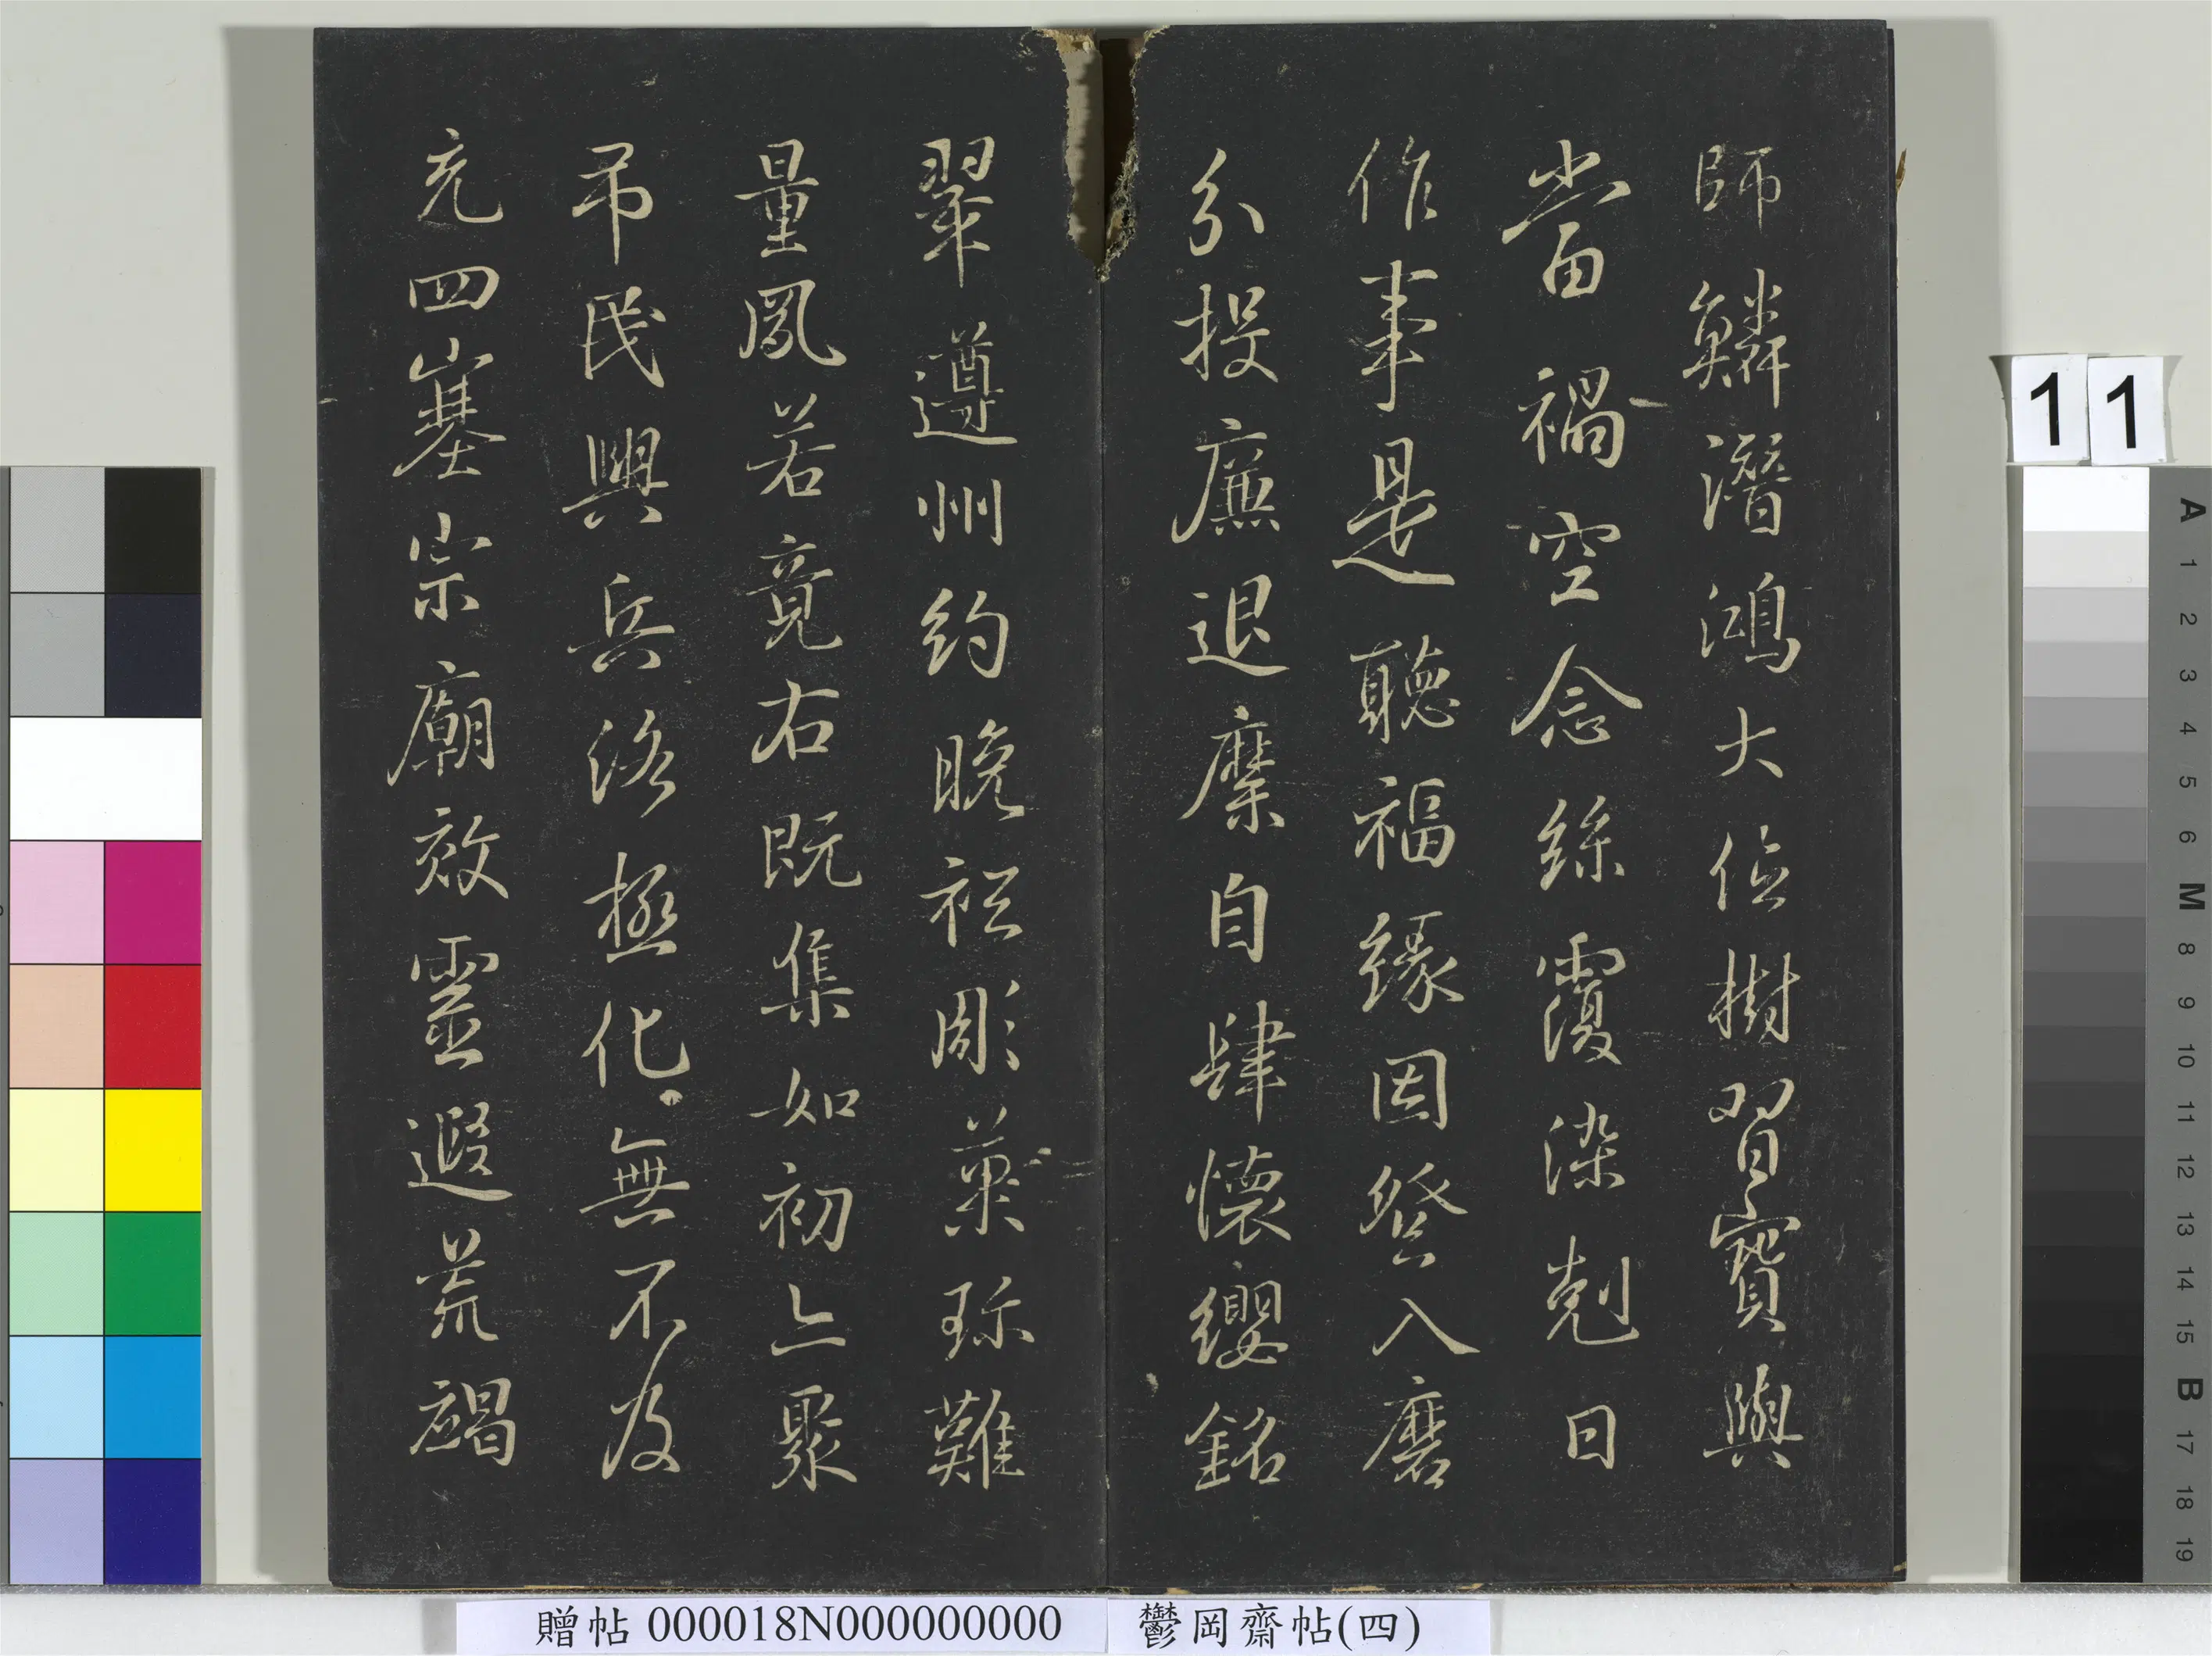 師鱗潛鴻大位樹習寶與
當禍空念絲覆染剋日
作事是聽福緣因登入磨
分投廉退縻自肆懷纓銘
翠遵州約晚祗彫葉珎難
量鳳若竟右既集如初聚
弔民興兵洛極化無不及
充四塞宗廟效靈遐荒竭
11
A 1 2 3 4 5 6 M 8 9 10 11 12 13 14 15 B 17 18 19
贈帖 000018N000000000 鬱岡齋帖(四)